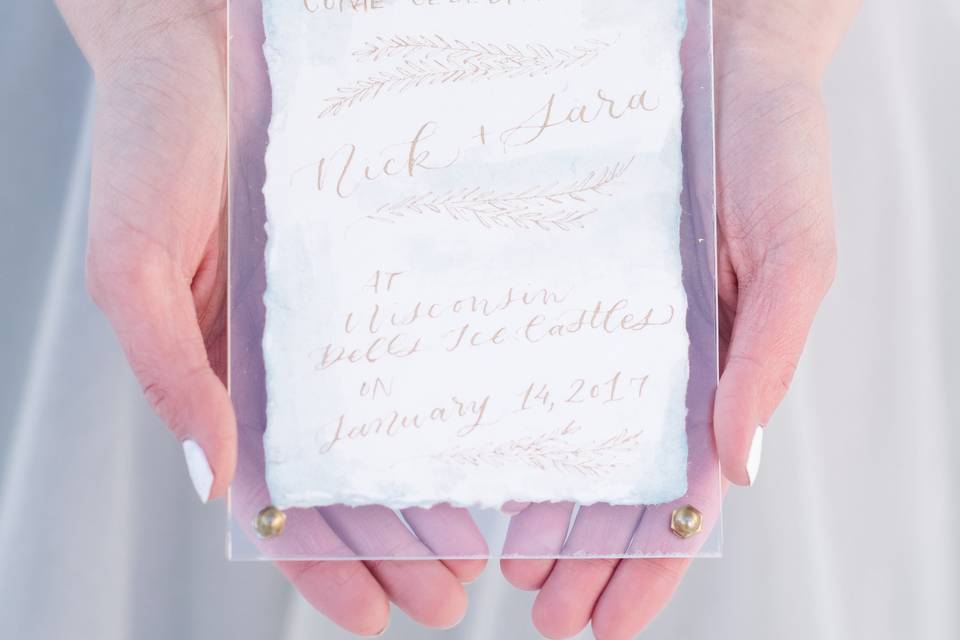 COME CELEBRATE
Nick + Sara
AT
Wisconsin
Dells Ice Castles
ON
January 14, 2017